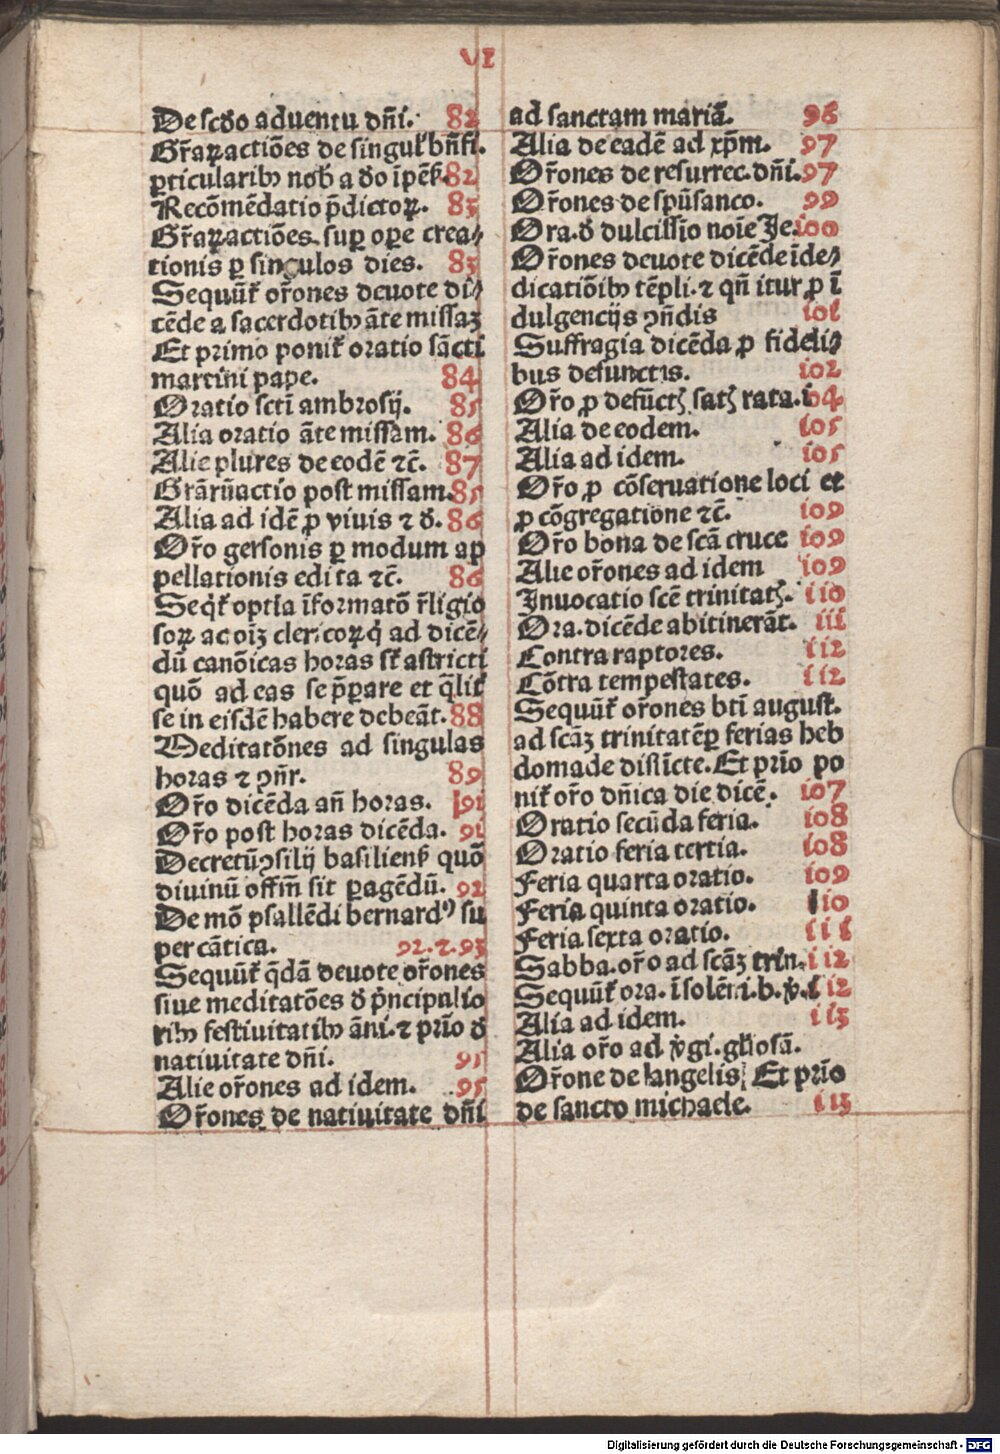 VI
De scd̉o aduentu dñi. 82
Gr̃aꝝ actiões de singul̕ bñfi.
ꝑticularibꝫ nob̕ a d̉o ĩpẽs̕. 82
Recõmẽdatio p̃dictoꝝ. 83
Gr̃aꝝ actiões. suꝑ oꝑe crea⸗
tionis ꝑ singulos dies. 83
Sequũt̕ or̃ones deuote di⸗
cẽde a sacerdotibꝫ ãte missaꝫ
Et primo ponit̕ oratio sãcti
martini pape. 84
Oratio scti ambrosij. 85
Alia oratio ãte missam. 86
Alie plures de eodẽ ⁊c̃. 87
Grãrũactio post missam. 85
Alia ad idẽ ꝓ viuis ⁊ d̉. 86
Or̃o gersonis ꝑ modum ap
pellationis edita ⁊c̃. 86
Seq̃t̕ optĩa ĩformatõ r̃ligio
soꝝ ac oĩꝫ clericoꝝ q̃ ad dicẽ⸗
dũ canõicas horas st̕ astricti
quõ ad eas se p̃ꝑare et q̃lit̕
se in eisdẽ habere debeãt. 88
Meditatõnes ad singulas
horas ⁊ ꝯñr. 89
Or̃o dicẽda añ horas. 91
Or̃o post horas dicẽda. 91
Decretũ ꝯsilij basiliens̕ quõ
diuinũ offm̃ sit ꝑagẽdũ. 92
De mõ psallẽdi bernardꝰ su
per cãtica. 92.⁊.93
Sequũt̕ q̃dã deuote or̃ones
siue meditatões d̉ p̃ncipalio
ribꝫ festiuitatibꝫ ãni. ⁊ pr̃io d̉
natiuitate dñi. 95
Alie or̃ones ad idem. 95
Or̃ones de natiuitate dñi
ad sanctam mariã. 96
Alia de eadẽ ad xp̃m. 97
Or̃ones de resurrec. dñi. 97
Or̃ones de spũsanco. 99
Ora. d̉ dulcissĩo noĩe Je. 100
Or̃ones deuote dicẽde ĩ de⸗
dicatiõibꝫ tẽpli. ⁊ qñ itur ꝓ ĩ
dulgencijs ꝯñdis 101
Suffragia dicẽda ꝓ fideli⸗
bus defunctis. 102
Or̃o ꝓ defũctꝭ satꝭ rata. 104
Alia de eodem. 105
Alia ad idem. 105
Or̃o ꝓ cõseruatione loci et
ꝓ cõgregatione ⁊c̃. 109
Or̃o bona de scã cruce 109
Alie or̃ones ad idem 109
Inuocatio scẽ trinitatꝭ. 110
Ora. dicẽde ab itinerãt. 111
Contra raptores. 112
Cõtra tempestates. 112
Sequũt̕ or̃ones bti august.
ad scãꝫ trinitatẽ ꝑ ferias heb
domade distĩcte. Et pr̃io po
nit̕ or̃o dñica die dicẽ. 107
Oratio secũda feria. 108
Oratio feria tertia. 108
Feria quarta oratio. 109
Feria quinta oratio. 110
Feria sexta oratio. 111
Sabba. or̃o ad scãꝫ trin. 112
Sequũt̕ ora. ĩ solẽni. b. v̉. 112
Alia ad idem. 113
Alia or̃o ad v̉gi. gl̃iosã.
Or̃one de angelis Et pr̃io
de sancto michaele. 113
Digitalisierung gefördert durch die Deutsche Forschungsgemeinschaft - DFG